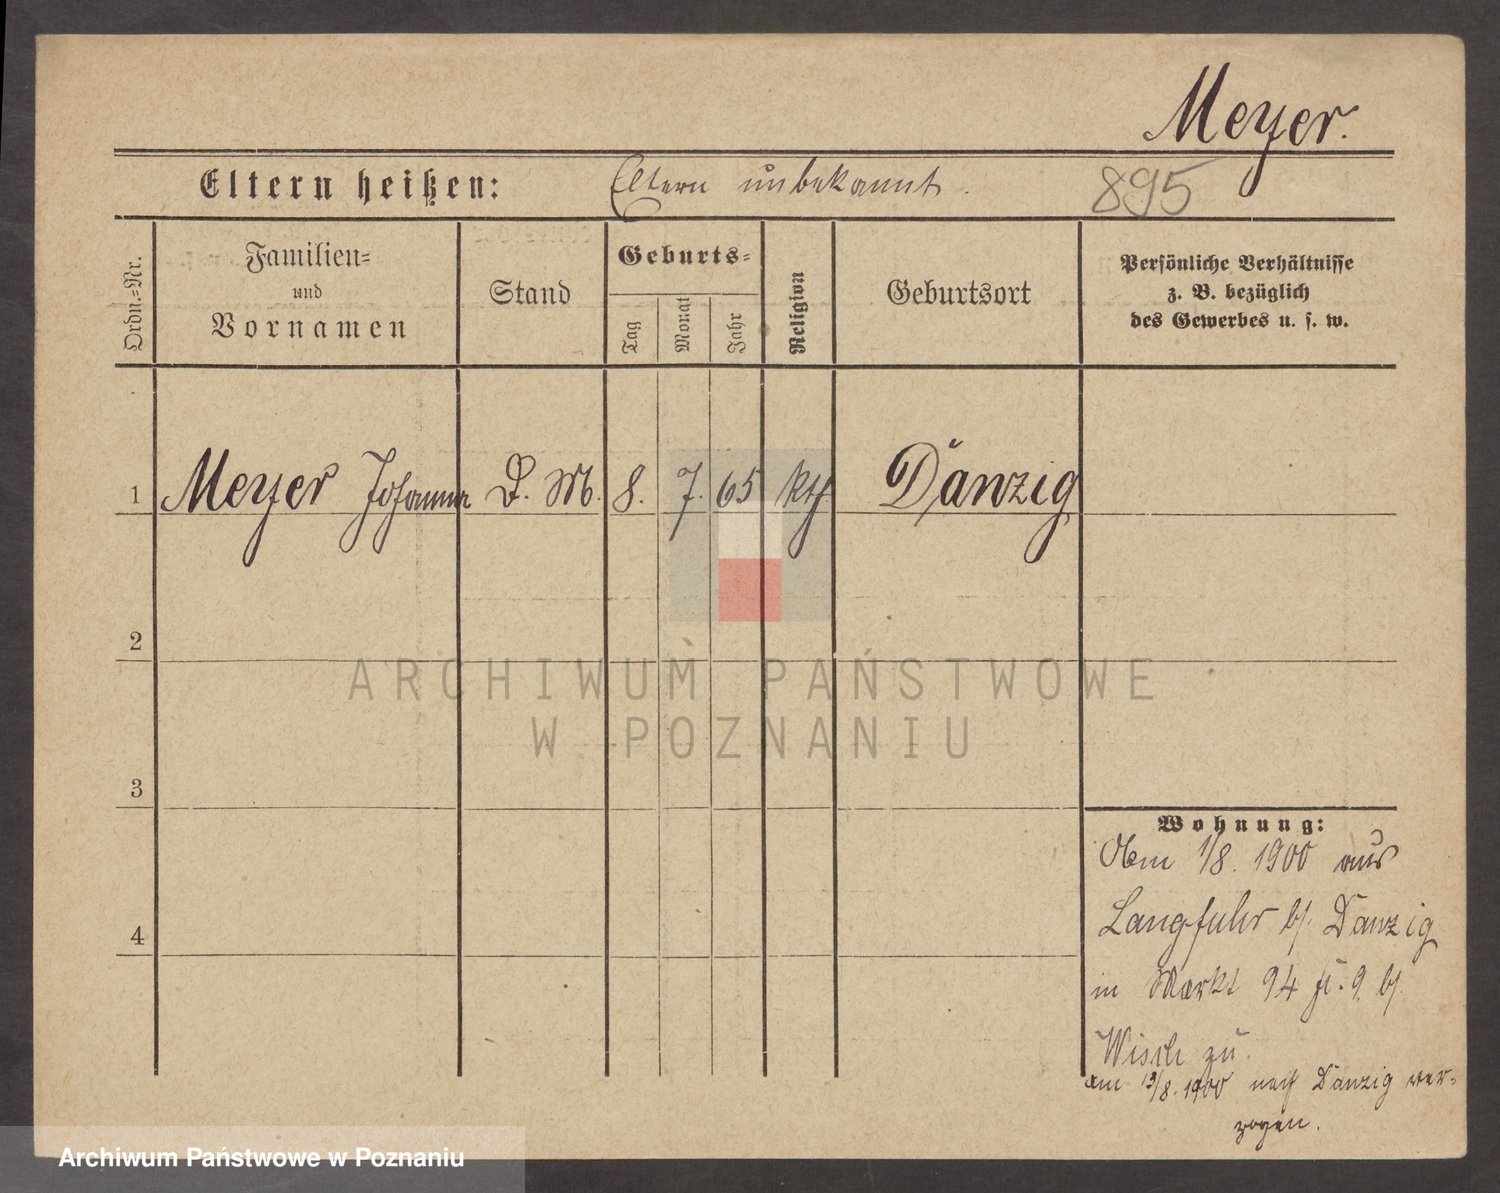 Meyer.
Eltern heißen: Eltern unbekannt. 895
Ordn.-Nr.
Familien-
und
Vornamen
Stand
Geburts-
Tag
Monat
Jahr
Religion
Geburtsort
Persönliche Verhältnisse
z. B. bezüglich
des Gewerbes u. s. w.
1 Meyer Johanna D. M. 8. 7. 65 kth. Danzig
2
ARCHIWUM PAŃSTWOWE
W POZNANIU
3
Wohnung:
1/8. 1900 aus
Langfuhr b/ Danzig
in Markt 94 b/
zu.
am 13/8. 1900 nach Danzig ver-
zogen.
4
Archiwum Państwowe w Poznaniu